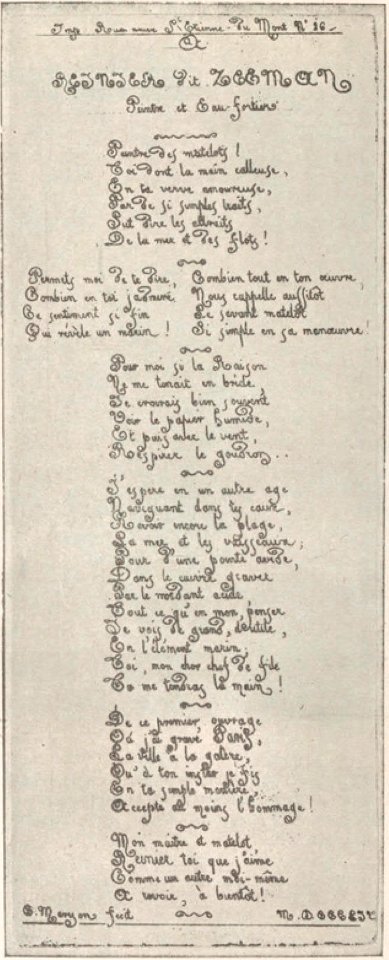 Imp. Rue neuve St Etienne-du-Mont No 26
A
REINIER dit ZEEMAN
Peintre et Eau-fortier
Peintre des matelots !
Toi dont la main calleuse,
En ta verve amoureuse,
Par de si simples traits,
Sut dire les attraits
De la mer et des flots !
Permets moi de te dire,
Combien en toi j'admire
Ce sentiment si fin
Qui révèle un marin !
Combien tout en ton œuvre,
Nous rappelle aussitot
Le savant matelot
Si simple en sa manœuvre !
Pour moi si la Raison
Ne me tenait en bride,
Je croirais bien souvent
Voir le papier humide,
Et puis avec le vent,
Respirer le goudron . .
J'espere en un autre age
Naviguant dans tes eaux,
Revoir encore la plage,
La mer et les vaisseaux ;
Pour d'une pointe avide,
Dans le cuivre graver
Par le mordant acide
Tout ce qu'en mon penser
Je vois de grand, d'utile,
En l'élément marin ;
Toi, mon cher chef de file
Tu me tendras la main !
De ce premier ouvrage
Où j'ai gravé Paris,
La ville à la galère,
Qu'à ton instar je fis
En ta simple manière,
Accepte au moins l'hommage !
Mon maitre et matelot
REINIER toi que j'aime
Comme un autre moi-même
A revoir, à bientot !
C. Meryon fecit